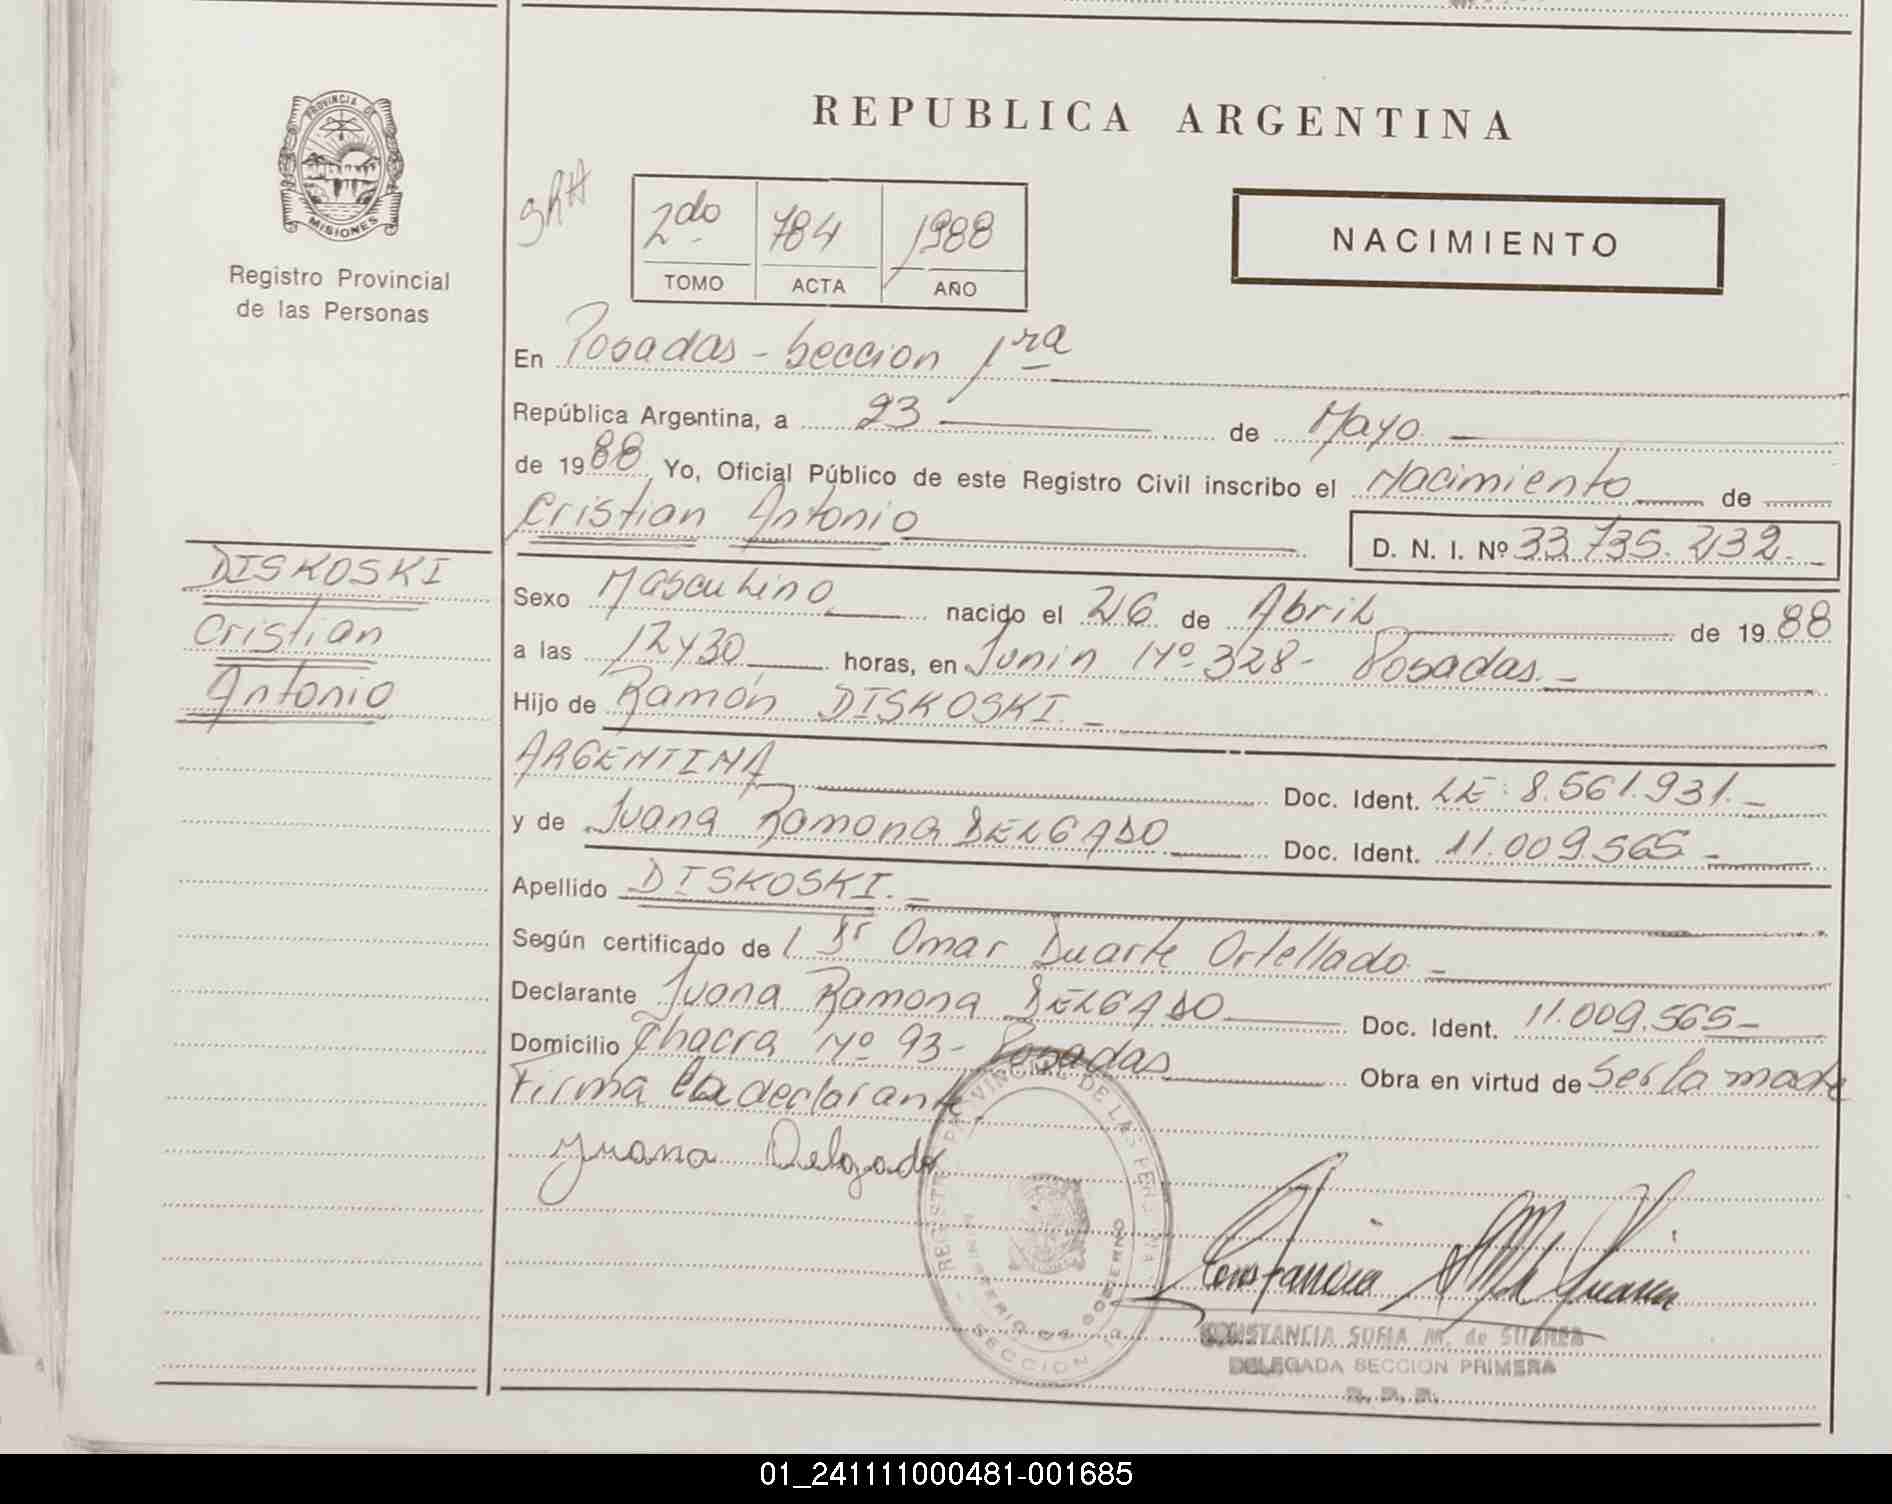 REPUBLICA ARGENTINA
PROVINCIA DE
MISIONES
Registro Provincial
de las Personas
2do 784 1988
TOMO ACTA AÑO
NACIMIENTO
En Posadas - Seccion 1ra
República Argentina, a 23 de Mayo
de 1988 Yo, Oficial Público de este Registro Civil inscribo el Nacimiento de
Cristian Antonio D. N. I. Nº 33.735.232.-
DISKOSKI
Cristian
Antonio
Sexo Masculino nacido el 26 de Abril de 1988
a las 12 y 30 horas, en Junin Nº 328 - Posadas. -
Hijo de Ramón DISKOSKI. -
ARGENTINA Doc. Ident. LE: 8.561.931. -
y de Juana Ramona DELGADO Doc. Ident. 11.009.565 -
Apellido DISKOSKI. -
Según certificado de l Dr Omar Duarte Ortellado -
Declarante Juana Ramona DELGADO Doc. Ident. 11.009.565 -
Domicilio Chacra Nº 93 - Posadas Obra en virtud de Ser la madre
Firma la declarante.
Juana Delgado
REGISTRO PROVINCIAL DE LAS PERSONAS
MINISTERIO DE GOBIERNO
SECCION 1a
CONSTANCIA SOFIA M. de SUAREZ
DELEGADA SECCION PRIMERA
R. P. P.
01_241111000481-001685